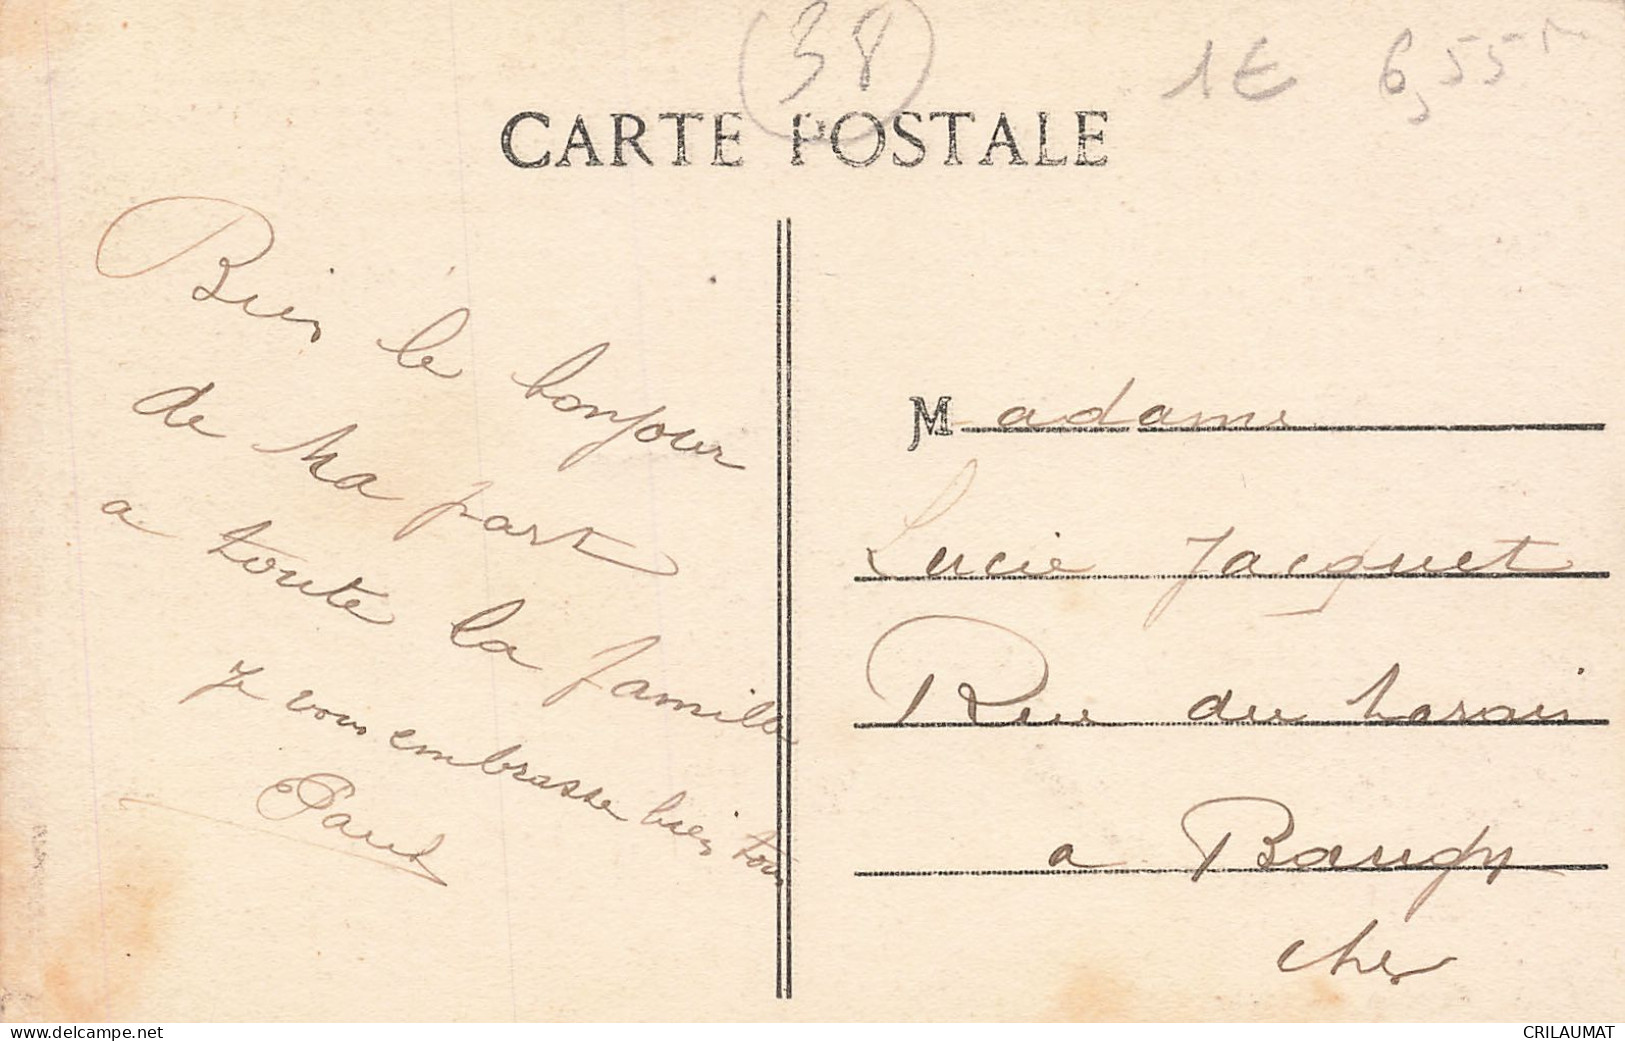 38
1€ 6,55
CARTE POSTALE
Bien le bonjour
de Ma part
a toute la famille
Je vous embrasse bien tous
Paul
Madame
Lucie Jacquet
Rue du Marais
a Baugy
Cher
www.delcampe.net
CRILAUMAT